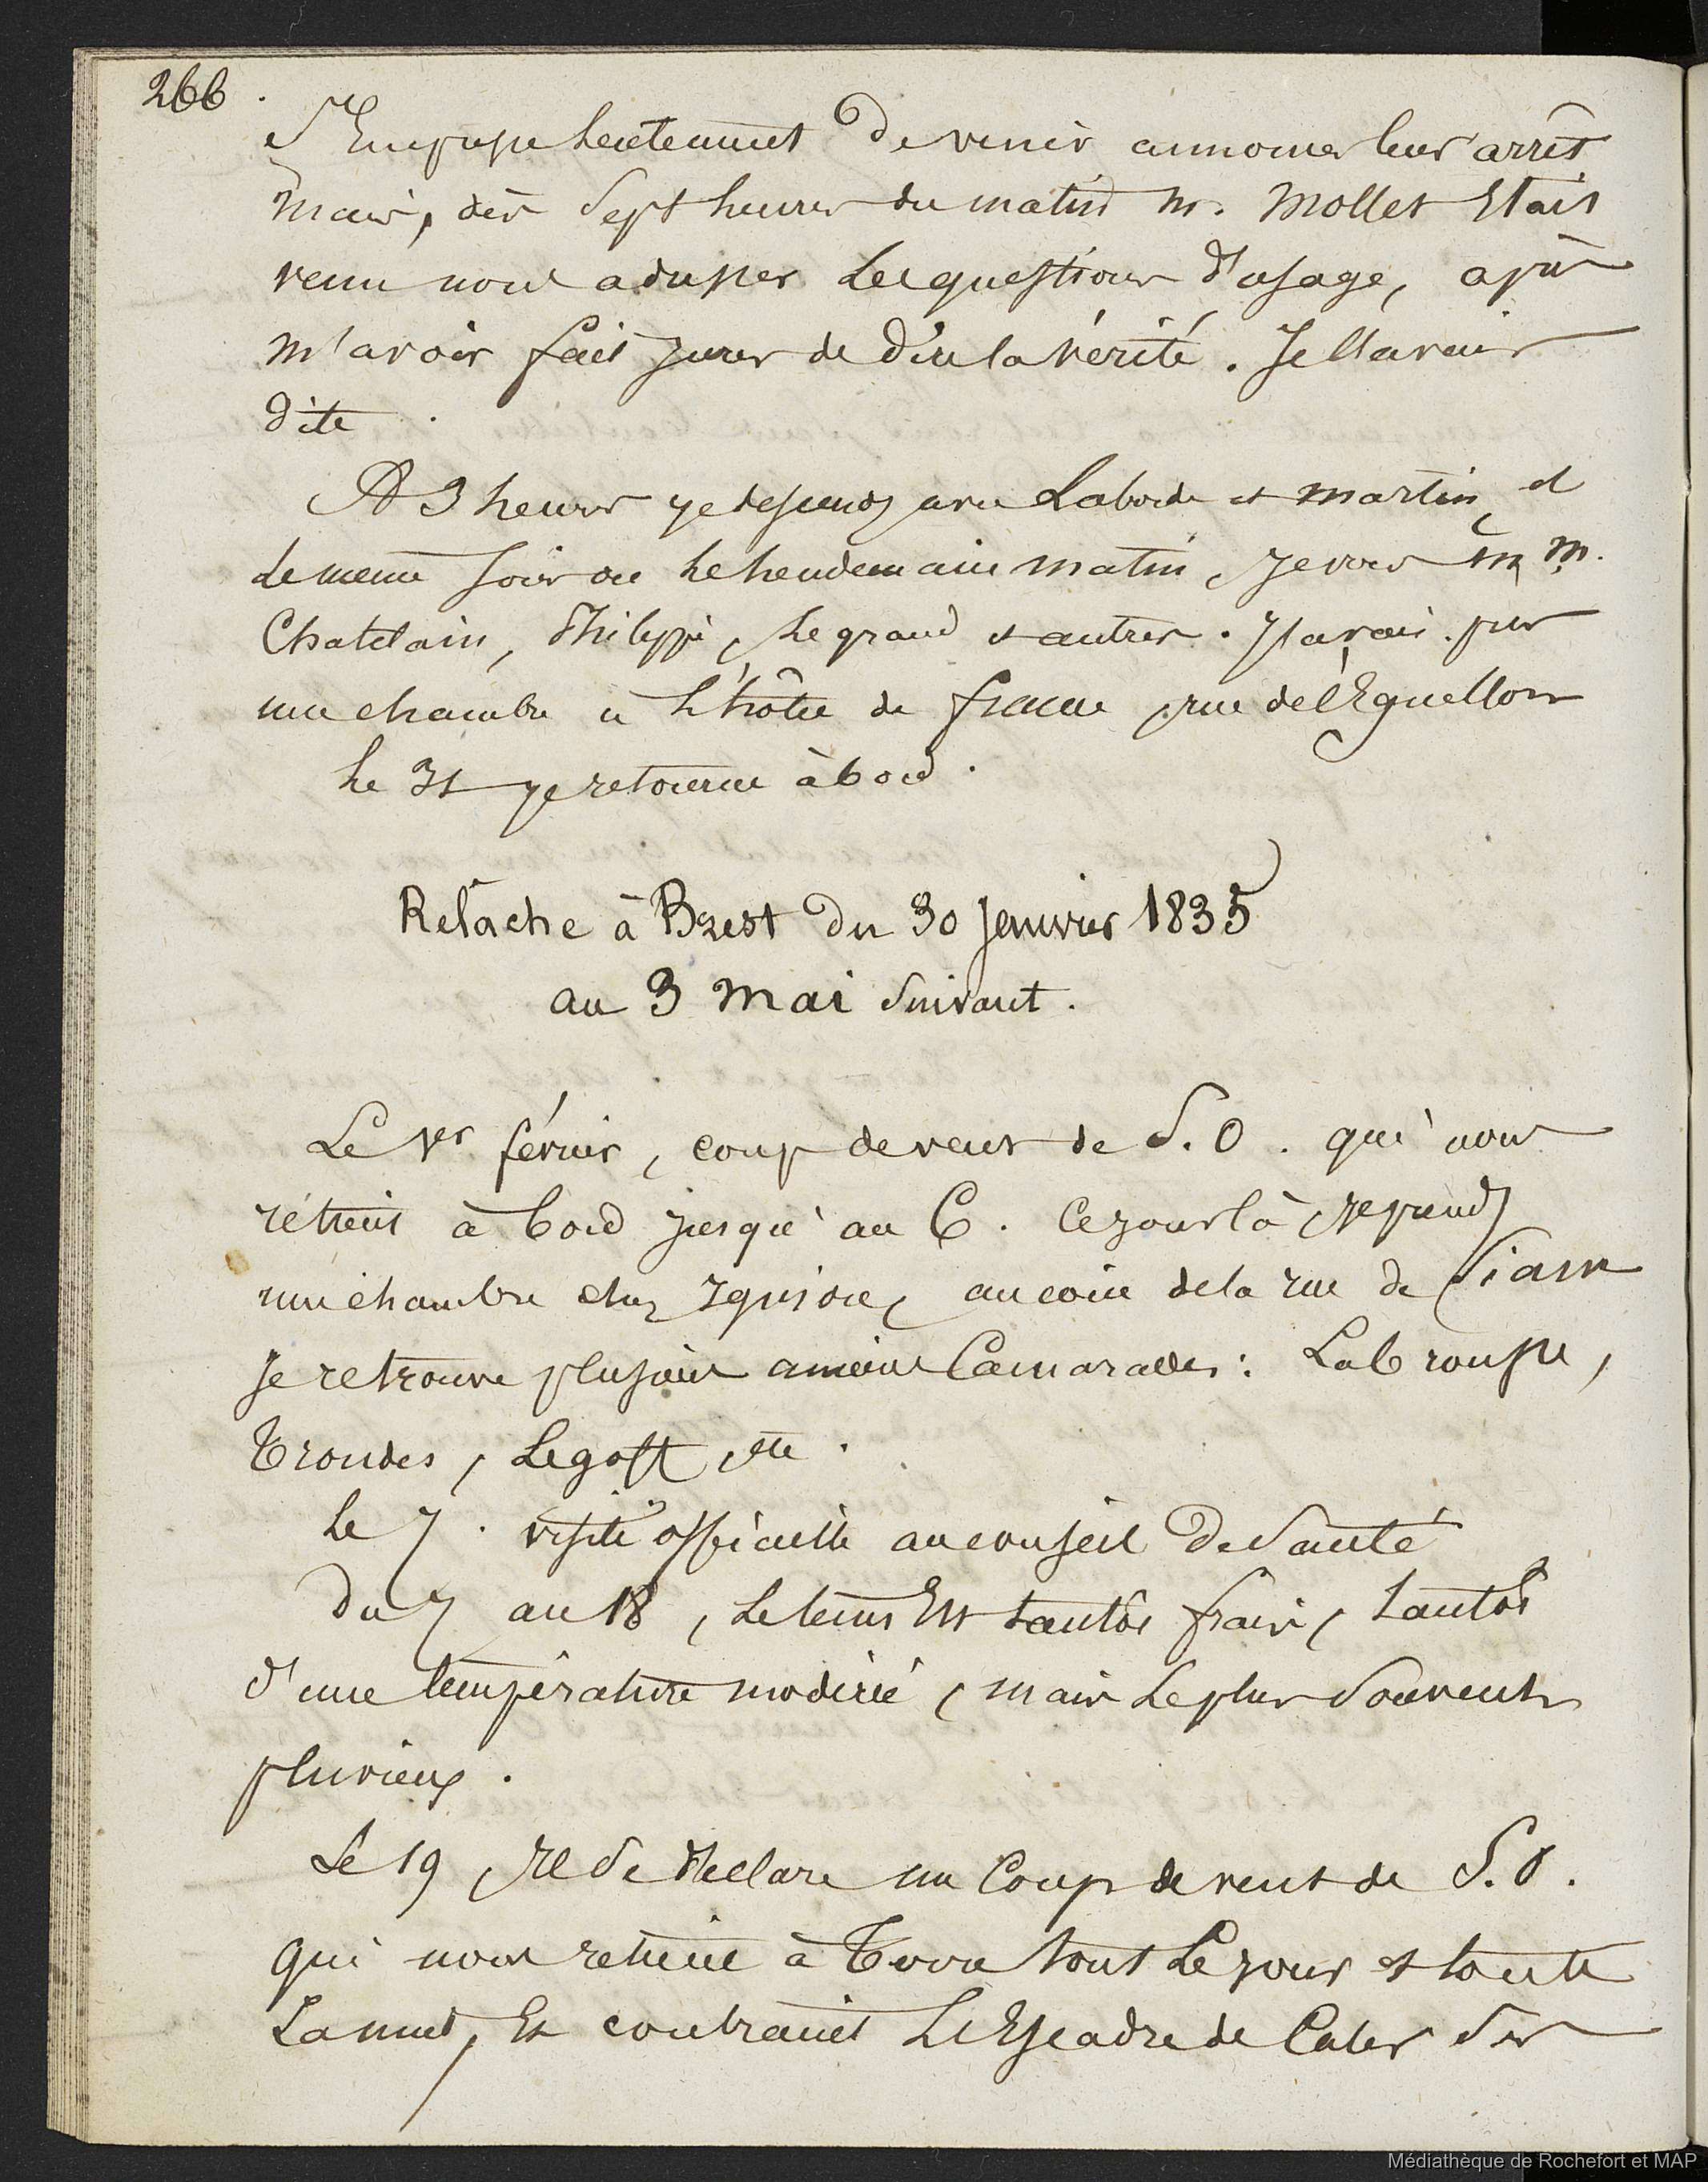 266.
S'Empresse lentement de venir annoncer leur arrêt
mais, dès Sept heures du matin M. Mollet Etait
venu nous adresser Les questions d'usage, après
m'avoir fait jurer de dire la vérité. Je l'avais
dite.
A 3 heures je descends avec Laborde et martin, et
le meme soir ou le lendemain matin, je vois M M.
Chatelain, Philippe, Legrand et autres. J'avais pris
une chambre à L'hôtel de france, rue de l'Eguillon
Le 31 je retourne à bord.
Relâche à Brest Du 30 Janvier 1835
au 3 Mai Suivant.
Le 1er février, coup de vent de S.O. qui nous
rétient à bord jusqu'au 6. Ce jour là je prends
une chambre chez au coin de la rue de Siam
Je retrouve plusieurs anciens Camarades: Labrousse,
Trondes, Legoff, etc.
Le 7. visite officielle au conseil de Santé
Du 7 au 18, Le tems Est tantôt frais, tantôt
d'une température modérée, mais Le plus Souvent
pluvieux.
Le 19, Il Se déclare un Coup de vent de S.O.
qui nous retient à Terre tout Le jour et toute
La nuit, Et contraint L'Escadre de Caler Ses
Médiathèque de Rochefort et MAP